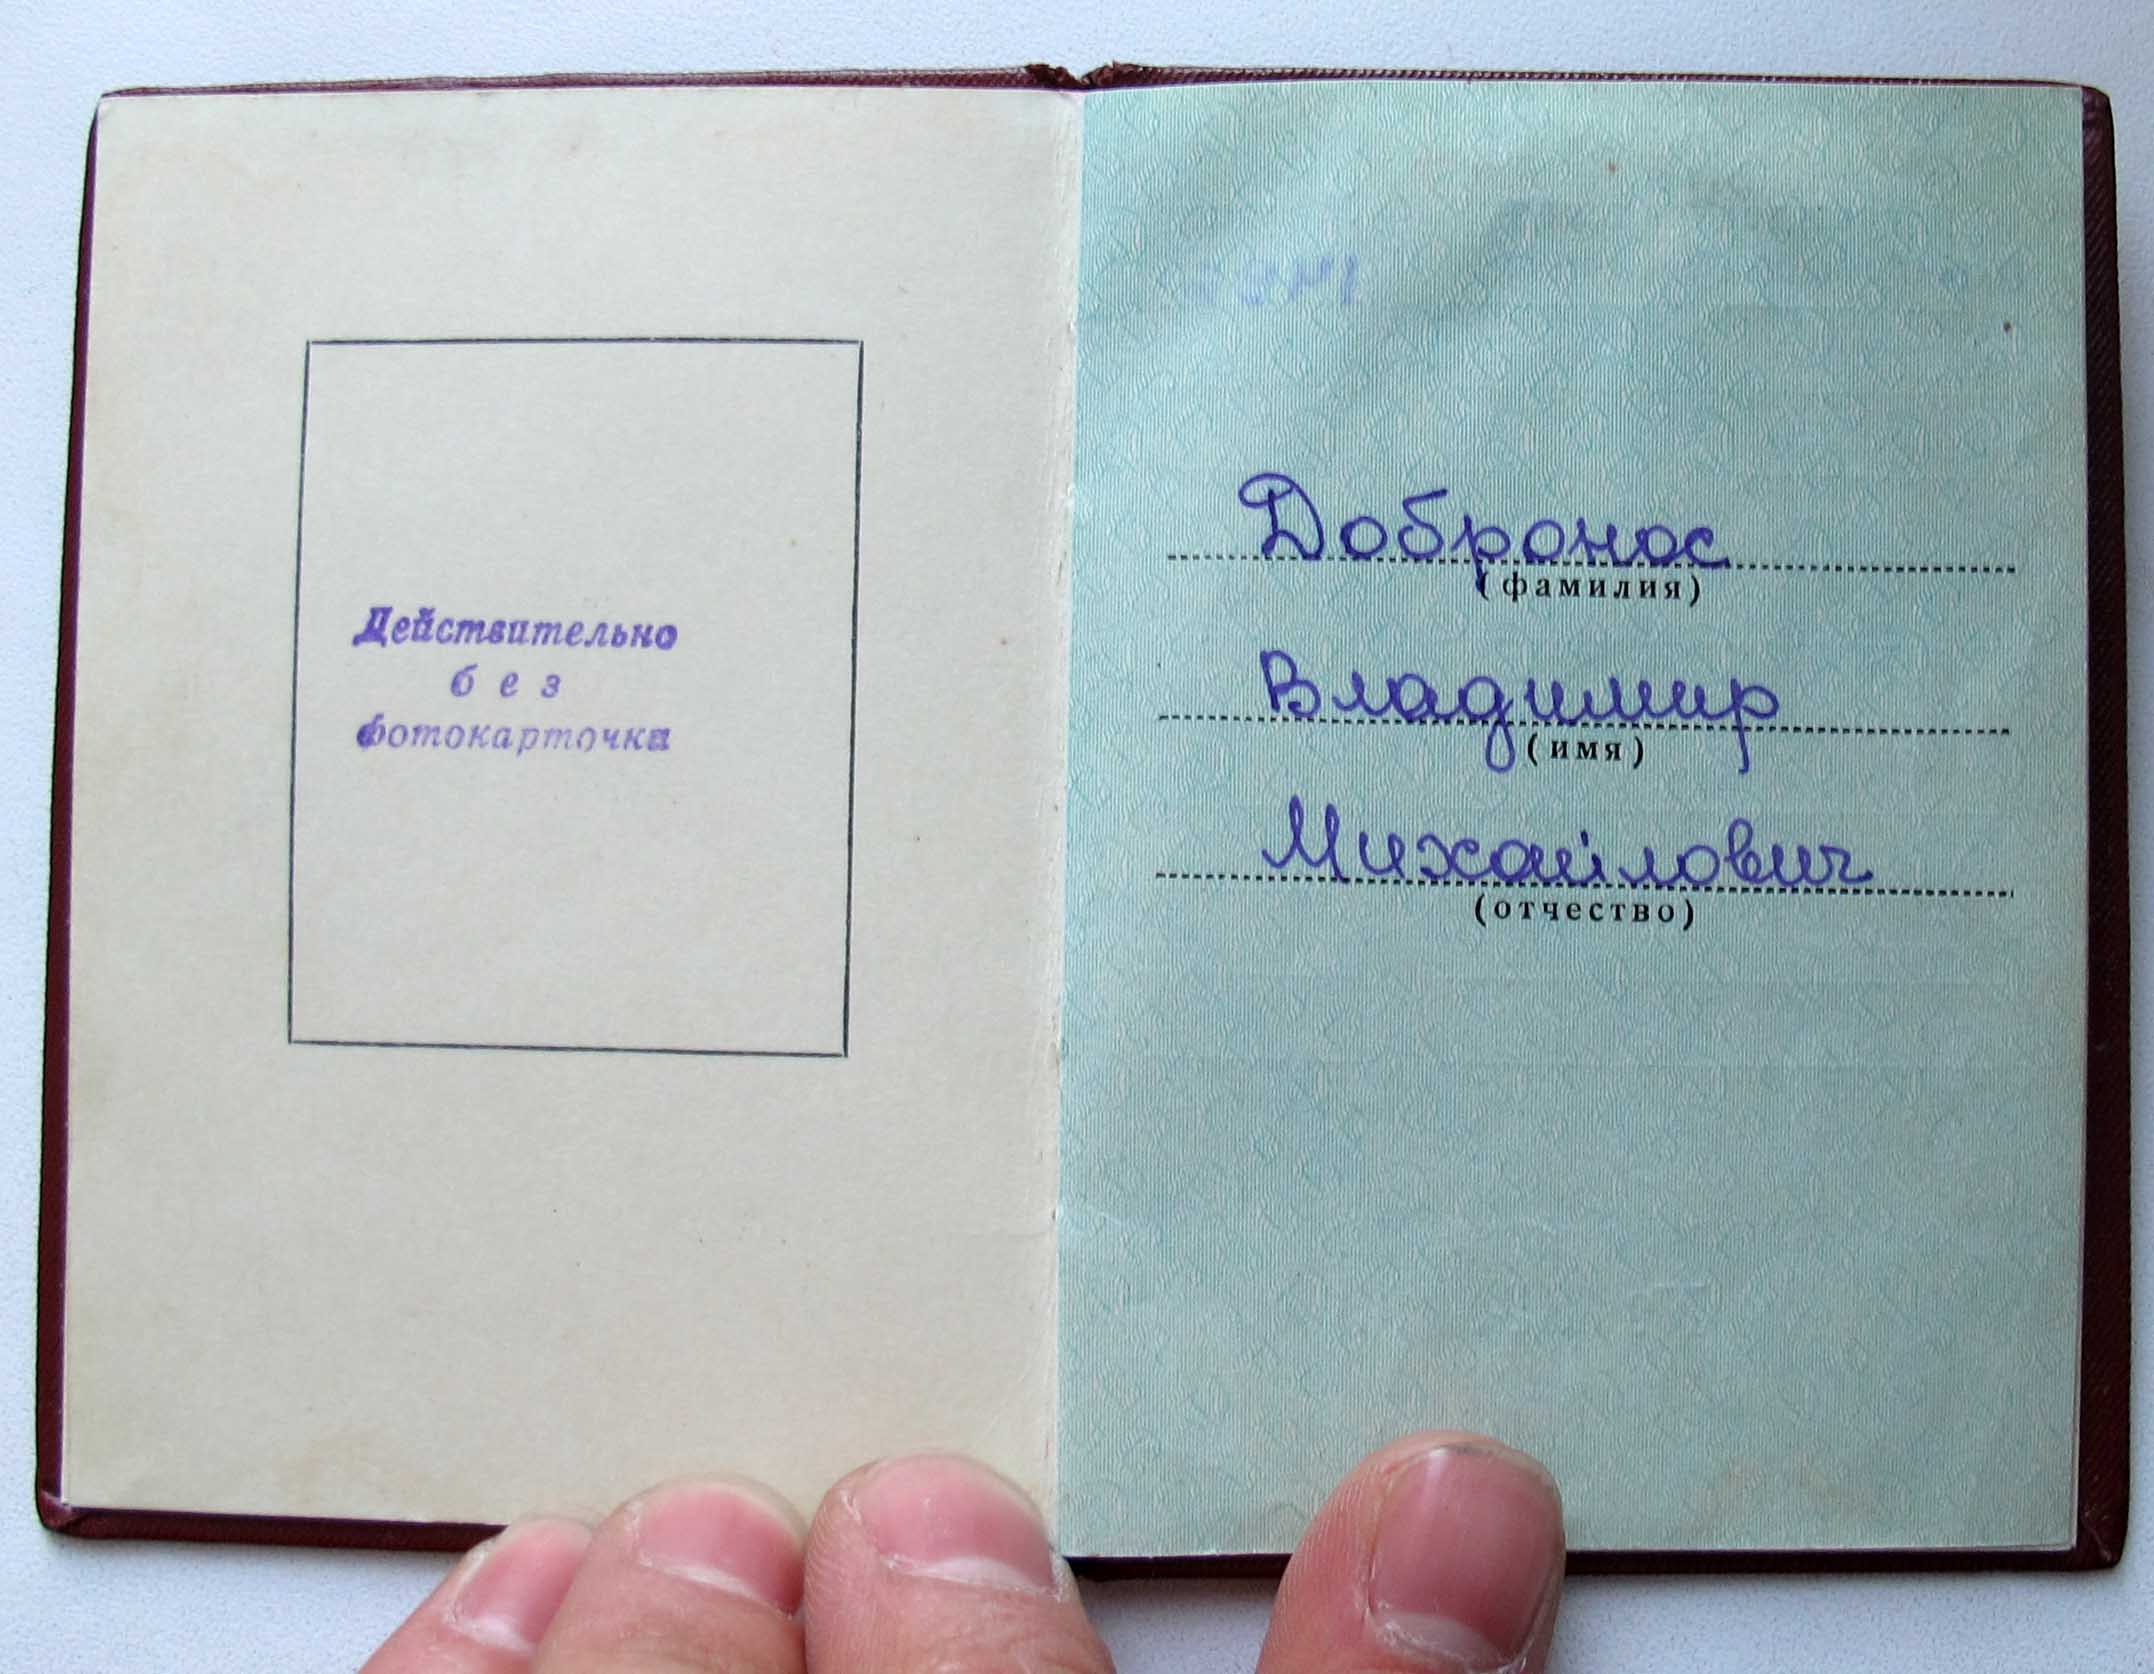 Действительно
без
фотокарточка
Добронос
(фамилия)
Владимир
(имя)
Михайлович
(отчество)